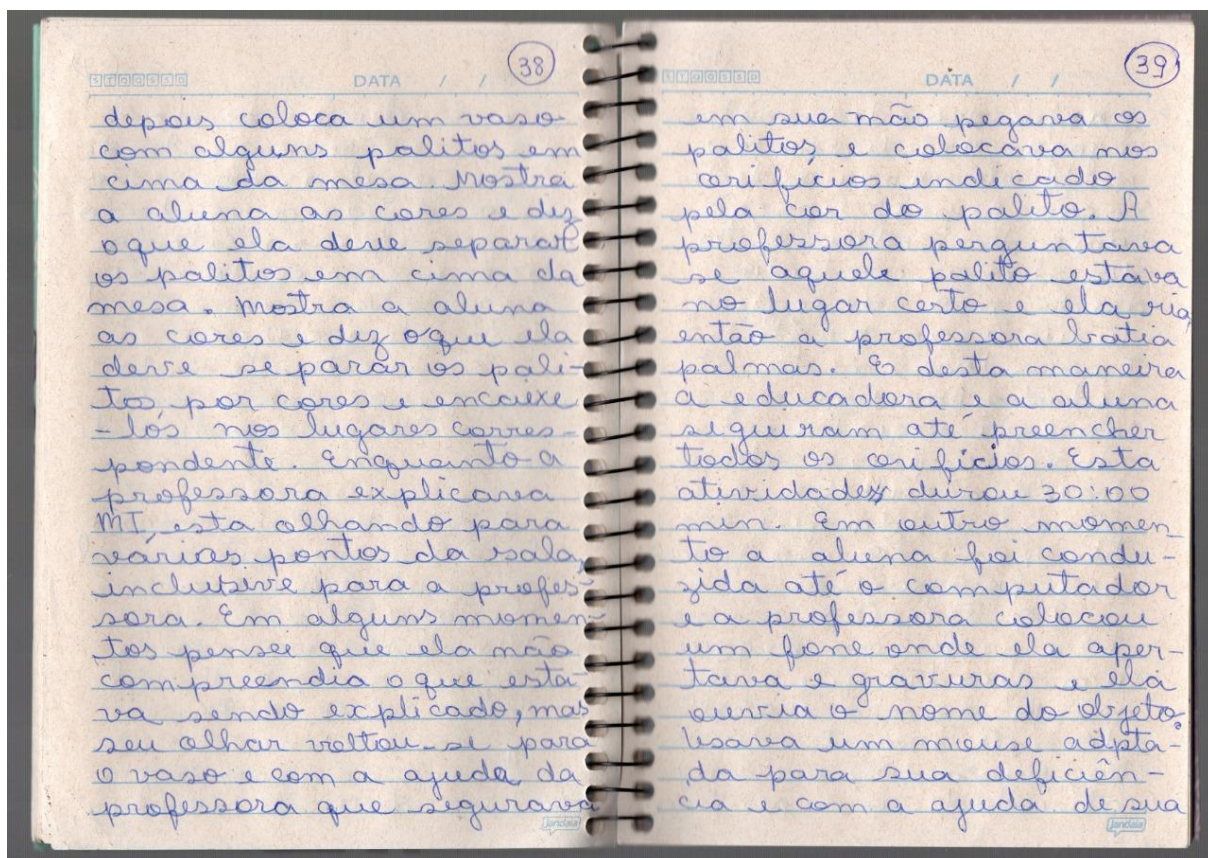 38
STQQSSD DATA / /
depois coloca um vaso
com alguns palitos em
cima da mesa. Mostra
a aluna as cores e diz
oque ela deve separar
os palitos em cima da
mesa. Mostra a aluna
as cores e diz oque ela
deve separar os pali-
tos, por cores e encaixe
-los nos lugares corres-
pondente. Enquanto a
professora explicava
MI, esta olhando para
vários pontos da sala,
inclusive para a profes-
sora. Em alguns momen-
tos pensei que ela não
compreendia o que esta-
va sendo explicado, mas
seu olhar voltou-se para
o vaso e com a ajuda da
professora que segurava
jandaia
39
STQQSSD DATA / /
em sua mão pegava os
palitos e colocava nos
orifícios indicado
pela cor do palito. A
professora perguntava
se aquele palito estava
no lugar certo e ela ria,
então a professora batia
palmas. E desta maneira
a educadora e a aluna
seguiram até preencher
todos os orifícios. Esta
atividade durou 30:00
min. Em outro momen
to a aluna foi condu-
zida até o computador
e a professora colocou
um fone onde ela aper-
tava e gravuras e ela
ouvia o nome do objeto.
Usava um mouse adpta-
da para sua deficiên-
cia e com a ajuda de sua
jandaia